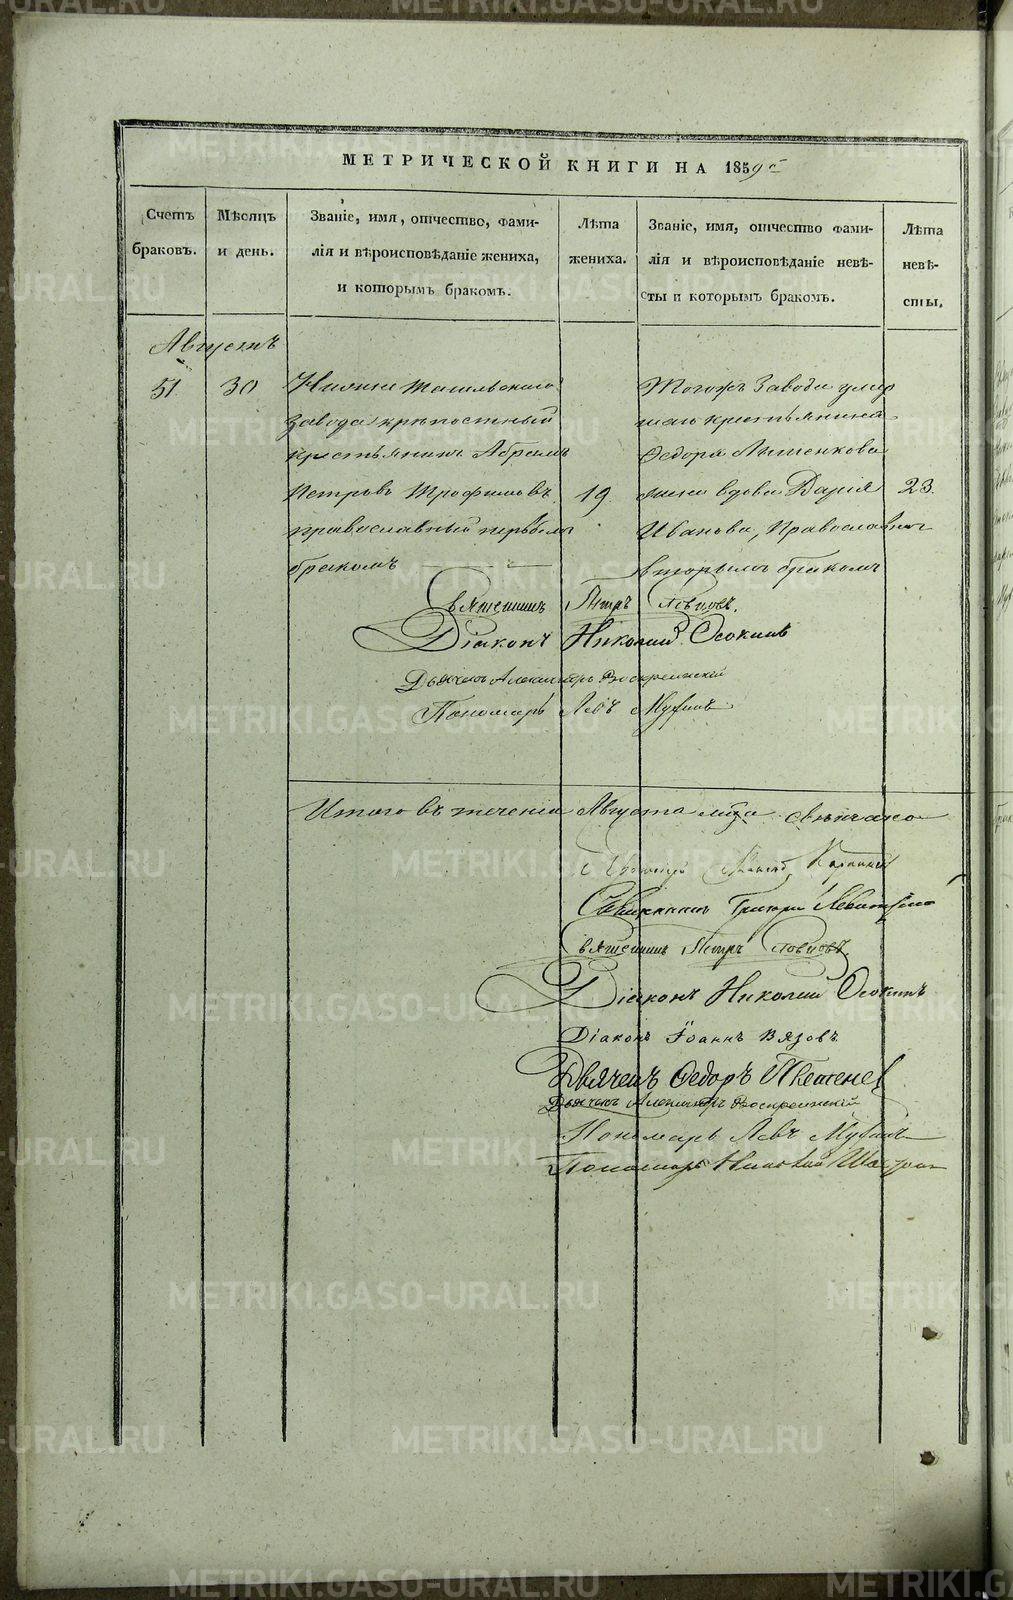 МЕТРИЧЕСКОЙ КНИГИ НА 1859 г
Счетъ браковъ.
Мѣсяцъ и день.
Званіе, имя, отчество, фами-
лія и вѣроисповѣданіе жениха,
и которымъ бракомъ.
Лѣта жениха.
Званіе, имя, отчество фами-
лія и вѣроисповѣданіе невѣ-
сты и которымъ бракомъ.
Лѣта невѣ-
сты.
Августъ
51
30
Нижне Тагильскаго
завода крѣпостный
крестьянинъ Абрамъ
Петровъ Трофимовъ
православный первымъ
бракомъ
19
Тогожъ завода умер
шаго крестьянина
Федора
жена вдова Дарія
Иванова, Православная
вторымъ бракомъ
23
Священникъ Петръ Словцовъ.
Діаконъ Николай Осокинъ
Дьячекъ Александръ Воскресенскій
Пономарь Левъ Мухинъ
Итого въ теченіи Августа мца свѣнчано
Священникъ Григорій Левитскій
Священникъ Петръ Словцовъ.
Діаконъ Николай Осокинъ
Діаконъ Іоаннъ Вязовъ
Дьячекъ Федоръ
Дьячекъ Александръ Воскресенскій
Пономарь Левъ Мухинъ
Пономарь Николай
METRIKI.GASO-URAL.RU